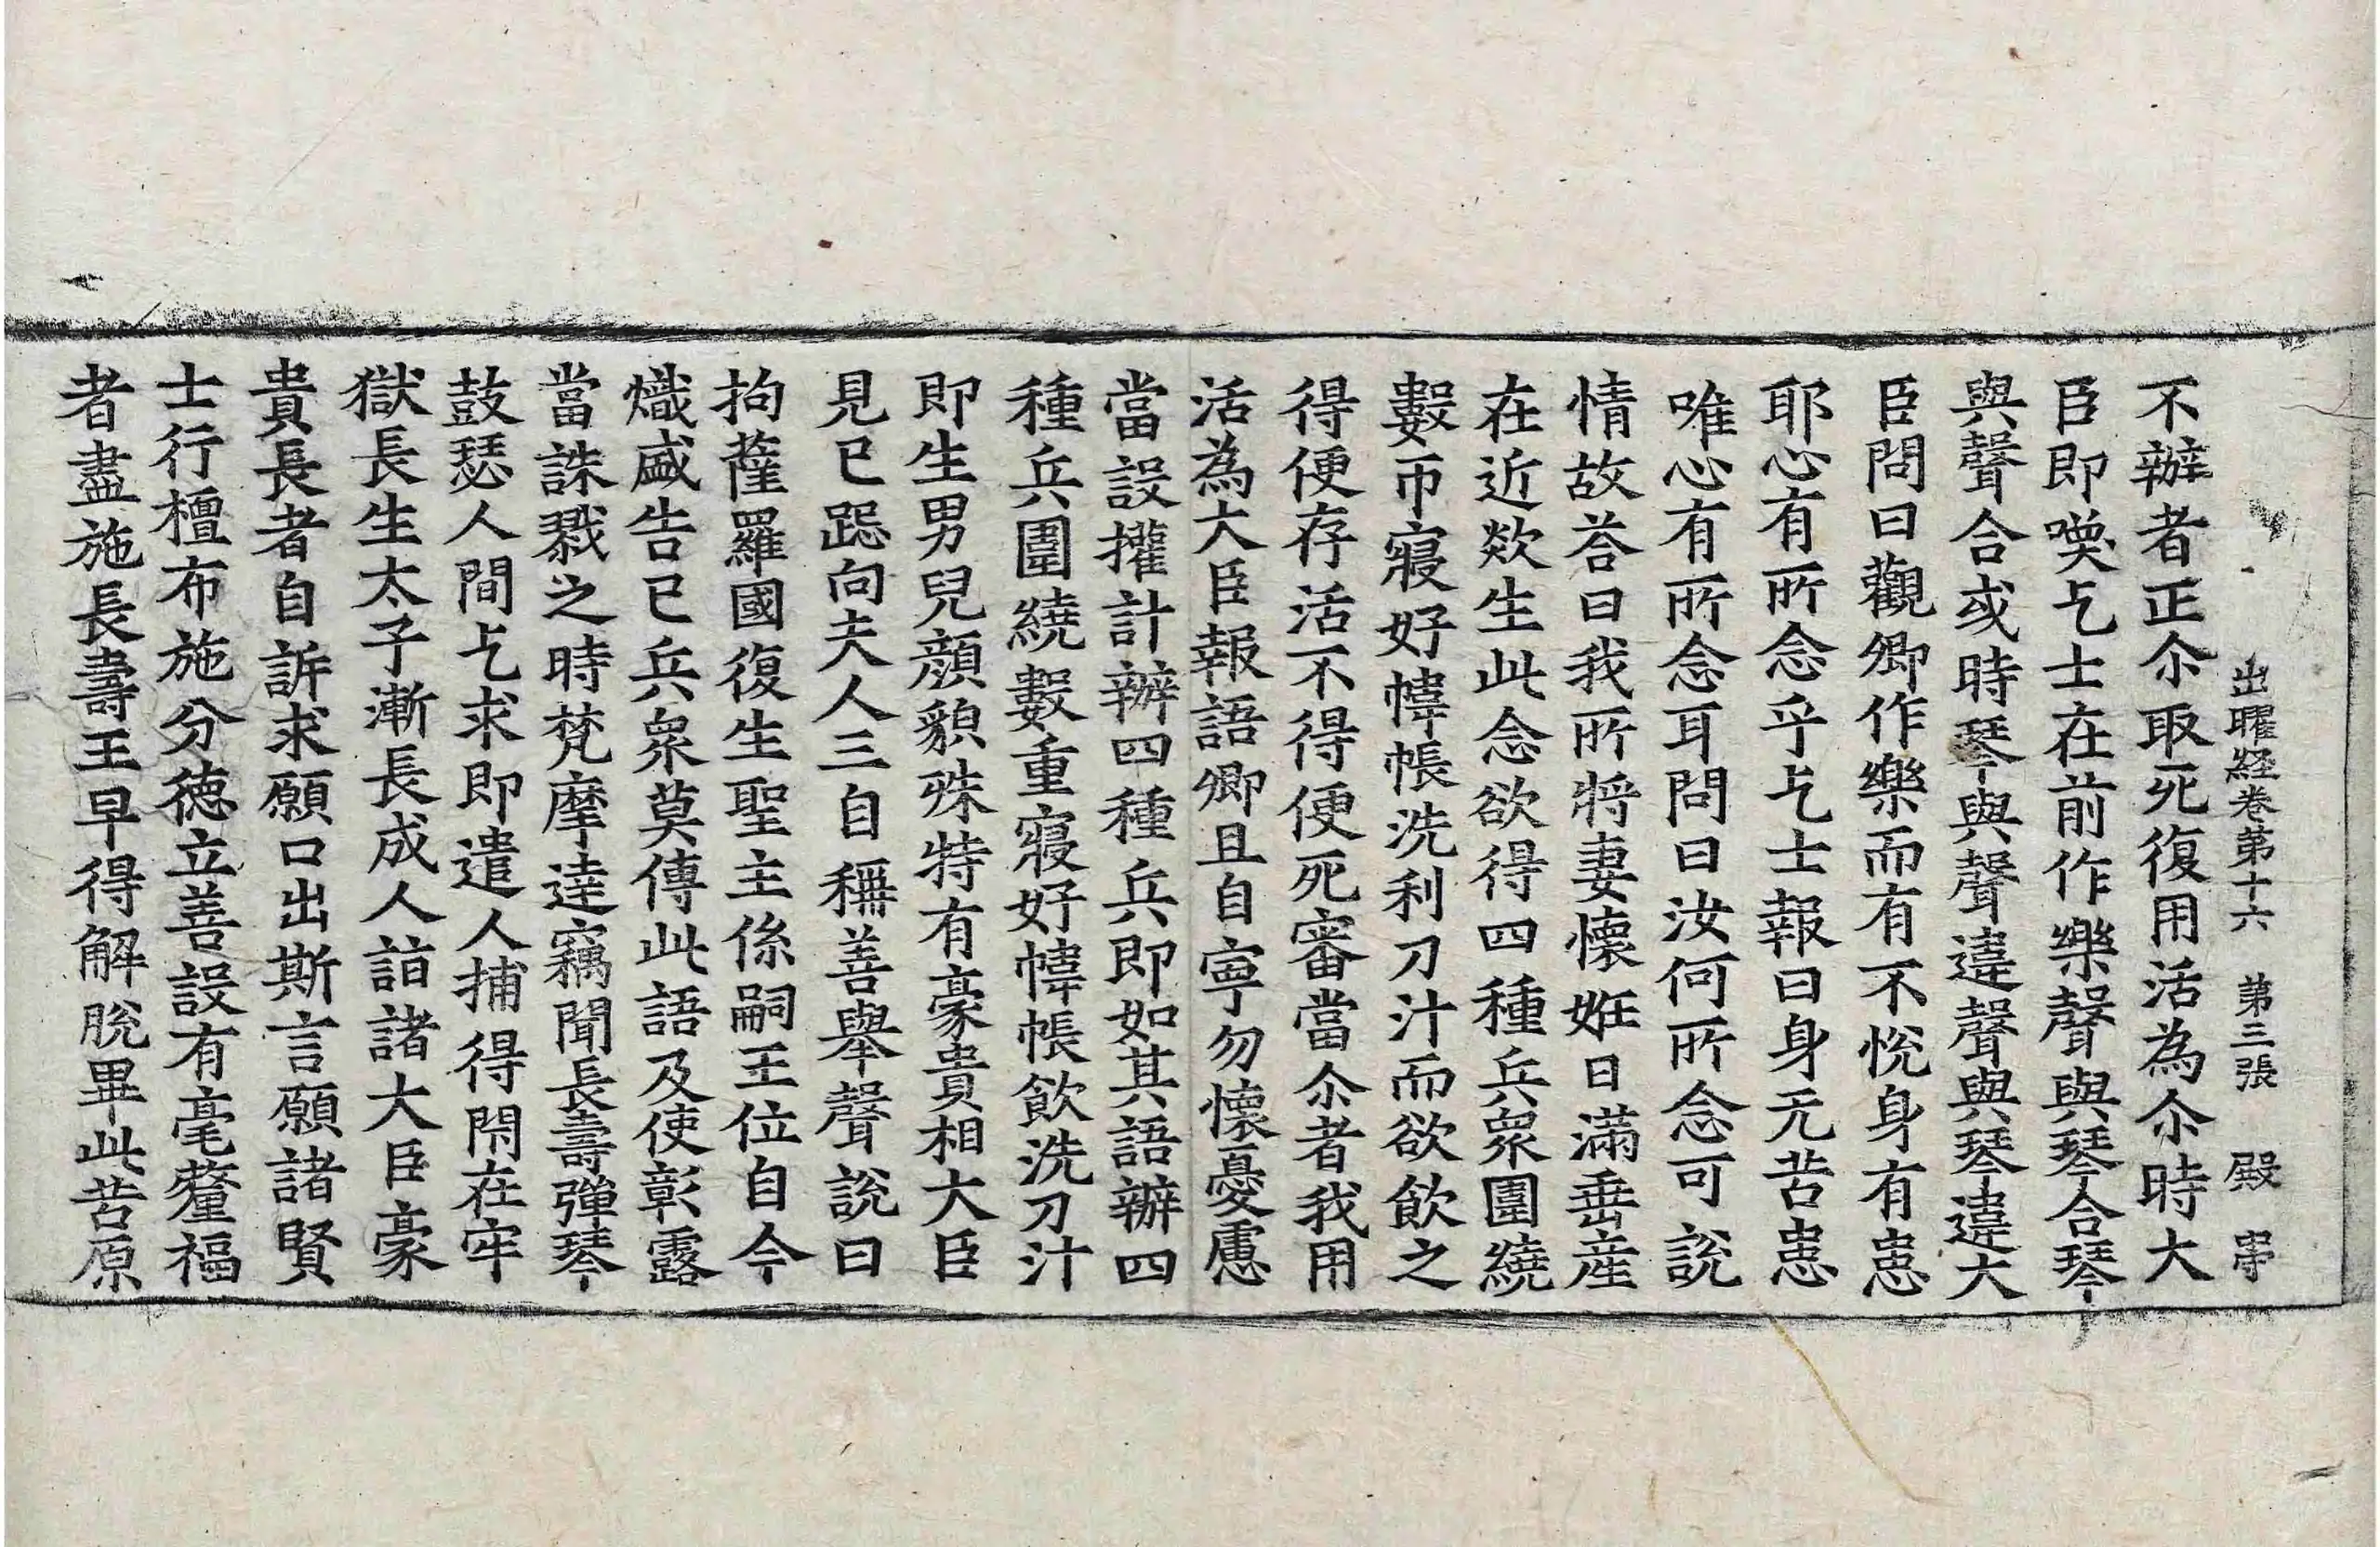 出曜經卷第十六 第三張 殿字
不辦者正尒取死復用活為尒時大
臣即喚乞士在前作樂聲與琴合琴
與聲合或時琴與聲違聲與琴違大
臣問曰觀卿作樂而有不悅身有患
耶心有所念乎乞士報曰身无苦患
唯心有所念耳問曰汝何所念可說
情故荅曰我所將妻懷姙日滿垂産
在近欻生此念欲得四種兵衆圍繞
數帀寢好幃帳洗利刀汁而欲飲之
得便存活不得便死審當尒者我用
活為大臣報語卿且自寧勿懷憂慮
當設㩲計辦四種兵即如其語辦四
種兵圍繞數重寢好幃帳飲洗刀汁
即生男兒顔貌殊特有豪貴相大臣
見已跽向夫人三自稱善舉聲說曰
拘薩羅國復生聖主係嗣王位自今
熾盛告已兵衆莫傳此語及使彰露
當誅戮之時梵摩達竊聞長壽彈琴
鼓瑟人間乞求即遣人捕得閇在牢
獄長生太子漸長成人詣諸大臣豪
貴長者自訴求願口出斯言願諸賢
士行檀布施分德立善設有毫釐福
者盡施長壽王早得解脫畢此苦原